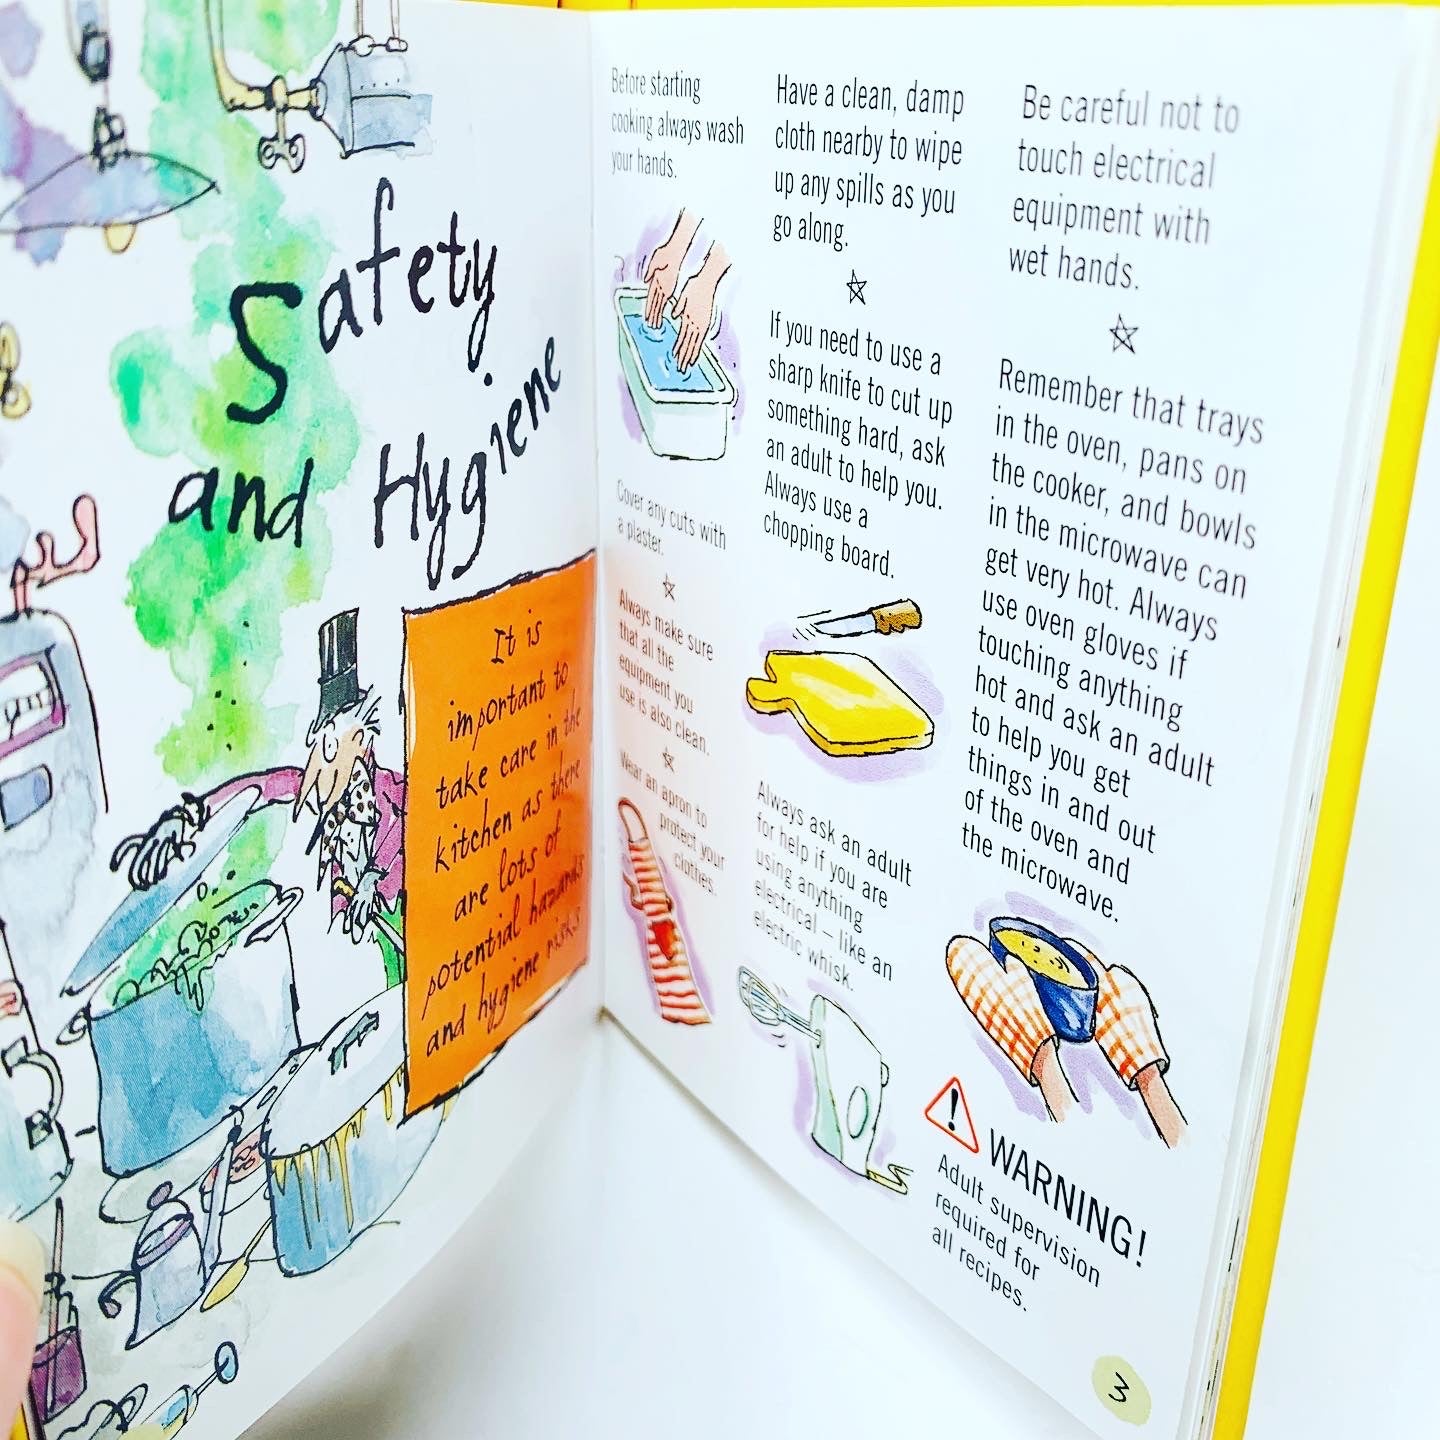 Safety
and Hygiene
It is
important to
take care in the
kitchen as there
are lots of
potential hazards
and hygiene risks
Before starting
cooking always wash
your hands.
Cover any cuts with
a plaster.
Always make sure
that all the
equipment you
use is also clean.
Wear an apron to
protect your
clothes.
Have a clean, damp
cloth nearby to wipe
up any spills as you
go along.
If you need to use a
sharp knife to cut up
something hard, ask
an adult to help you.
Always use a
chopping board.
Always ask an adult
for help if you are
using anything
electrical – like an
electric whisk.
Be careful not to
touch electrical
equipment with
wet hands.
Remember that trays
in the oven, pans on
the cooker, and bowls
in the microwave can
get very hot. Always
use oven gloves if
touching anything
hot and ask an adult
to help you get
things in and out
of the oven and
the microwave.
! WARNING!
Adult supervision
required for
all recipes.
3